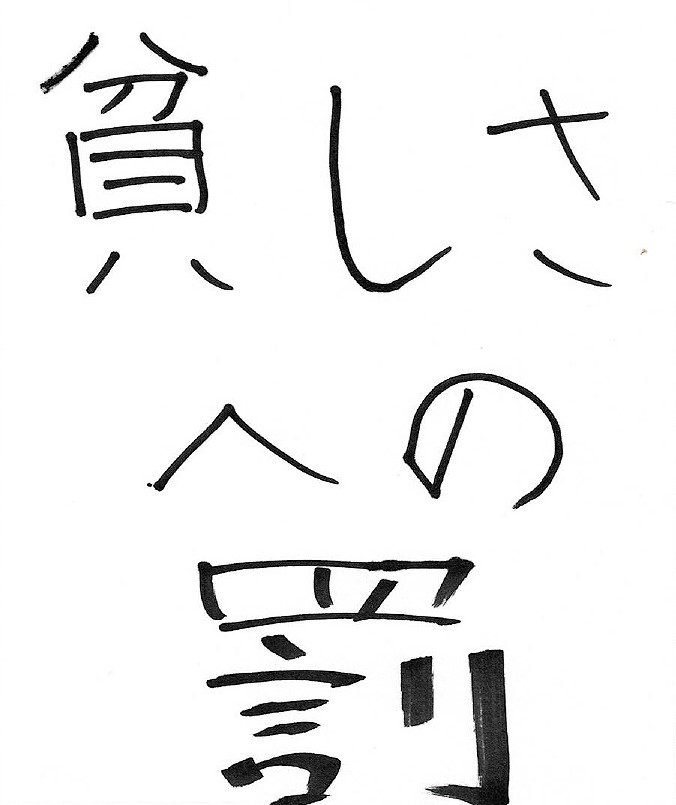 貧しさ
への
罰